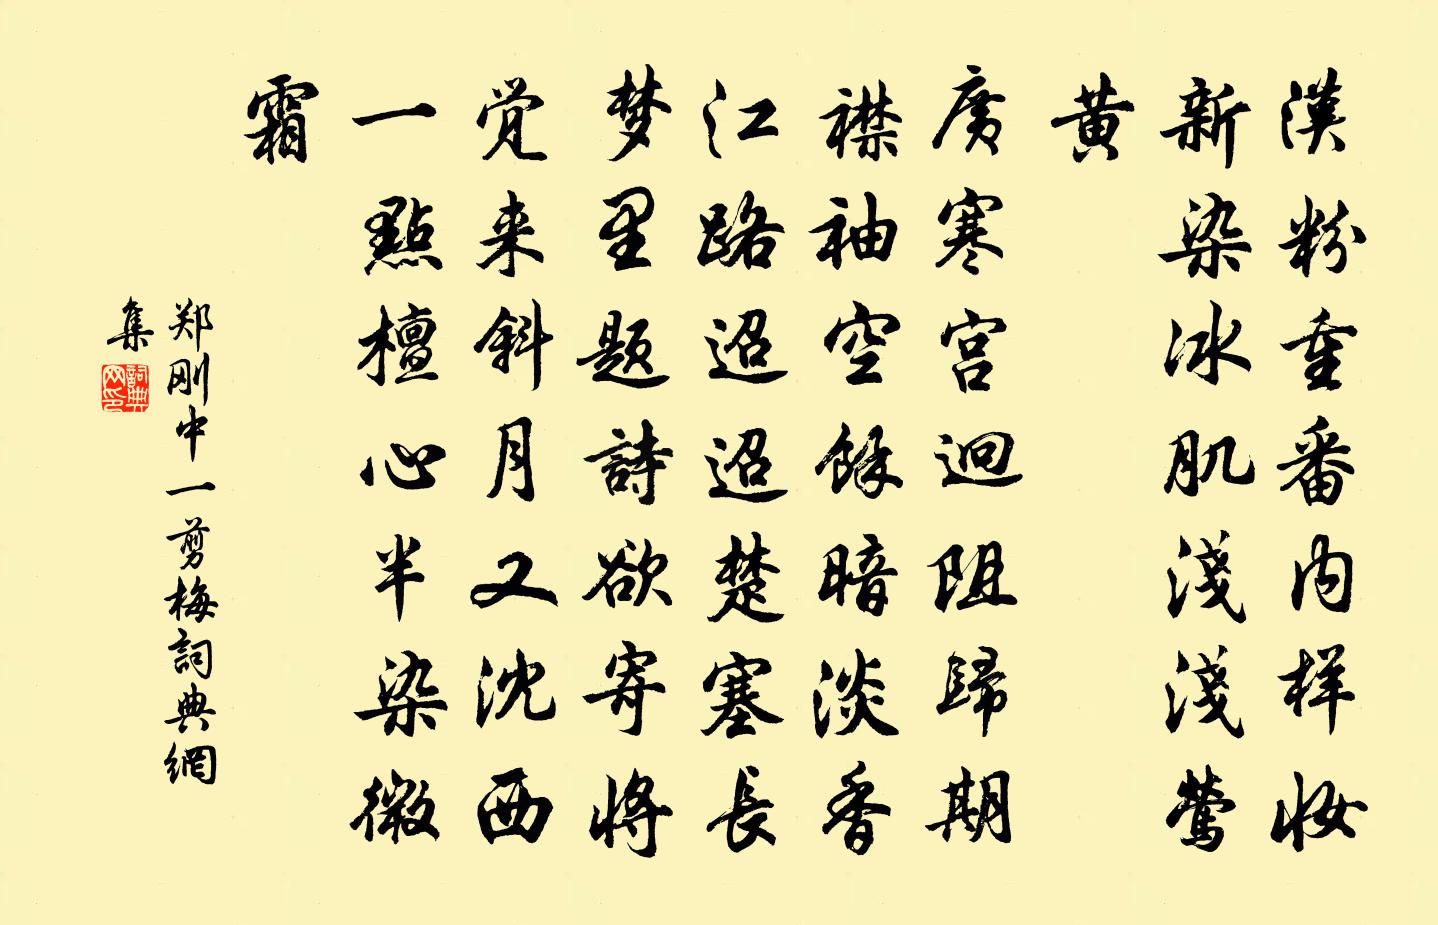 漢粉重番内样妆
新染冰肌淺淺鶯
黄
廣寒宫迴阻歸期
襟袖空餘暗淡香
江路迢迢楚塞長
梦里题詩欲寄将
觉来斜月又沈西
一點檀心半染微
霜
郑刚中一剪梅詞典網
集
詞典
网印